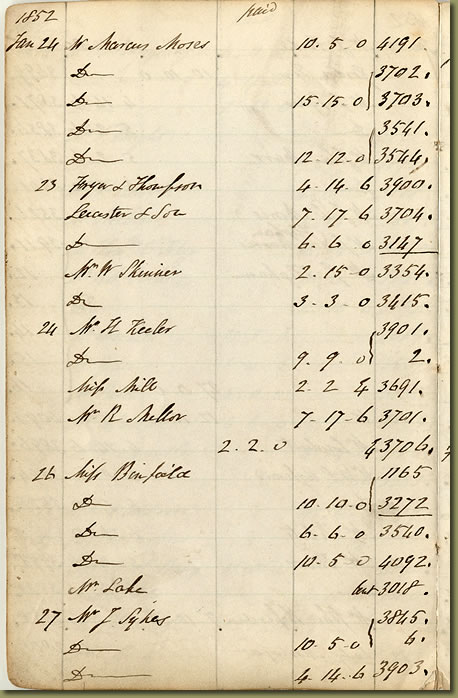 1852 paid
Jan 24 Mr Marcus Moses 10. 5. 0 4191.
Do 3702.
Do 15. 15. 0 3703.
Do 3541.
Do 12. 12. 0 3544.
23 Fryer & Thompson 4. 14. 6 3900.
Leicester & Son 7. 17. 6 3704.
Do 6. 6. 0 3147
Mr W Skinner 2. 15. 0 3354.
Do 3. 3. 0 3415.
24 Mr H Keeler 3901.
Do 9. 9. 0 2.
Miss Mill 2. 2 4 3691.
Mr R Mellor 7. 17. 6 3701.
2. 2. 0 3706.
26 Miss Binfield 1165
Do 10. 10. 0 3272
Do 6. 6. 0 3540.
Do 10. 5. 0 4092.
Mr Lake 3018.
27 Mr J Sykes 3845.
Do 10. 5. 0 6.
Do 4. 14. 6 3903.